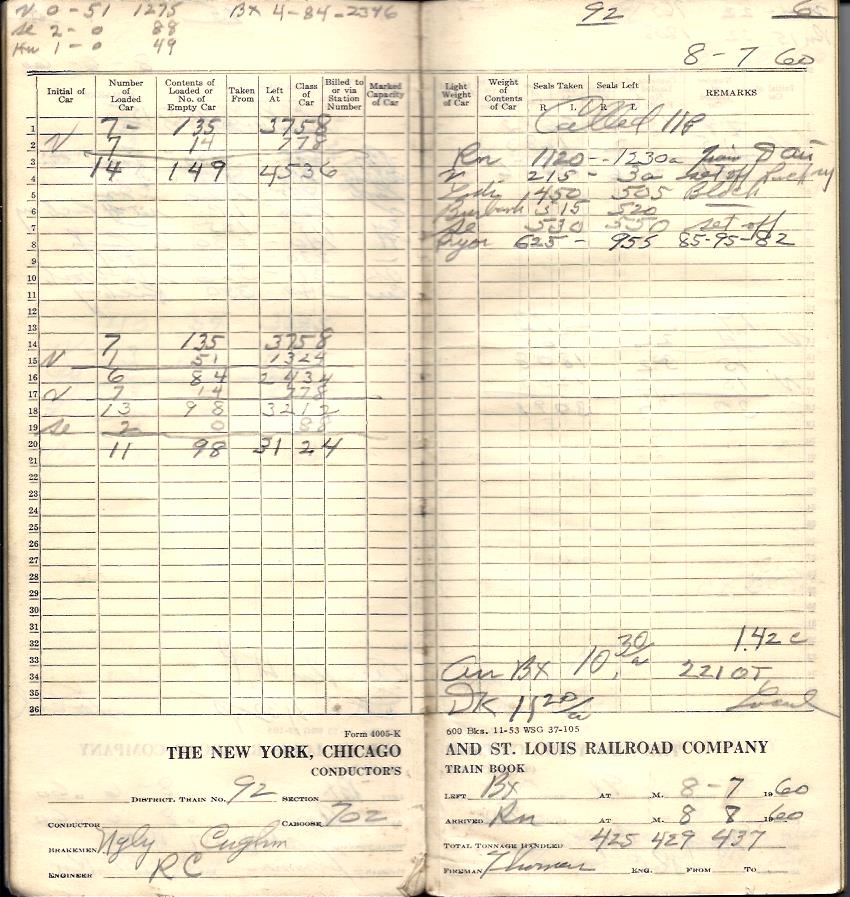 N 0-51 1275 Bx 4-84-2346 92 6
Se 2-0 88
Kn 1-0 49
8-7 60
Initial of Car
Number of Loaded Car
Contents of Loaded or No. of Empty Car
Taken From
Left At
Class of Car
Billed to or via Station Number
Marked Capacity of Car
Light Weight of Car
Weight of Contents of Car
Seals Taken R. L.
Seals Left R. L.
REMARKS
1 7- 135 3758 Called 11P
2 N 7 14 778
3 Rn 1120--1230a
4 14 149 4536 N 215-3a set off
5 450 505 Block
6 Burbank 515 520
7 Se 530 550 set off
8 625- 955 85-95-82
9
10
11
12
13
14 7 135 3758
15 N 1 51 1324
16 6 84 2434
17 N 7 14 778
18 13 98 3212
19 Se 2 0 88
20 11 98 3124
21
22
23
24
25
26
27
28
29
30
31
32 1.42 c
33 Arr Bx 10 30/a 221 OT
34
35 DK 11 20/a Local
36
Form 4005-K
THE NEW YORK, CHICAGO
CONDUCTOR'S
DISTRICT. TRAIN NO. 92 SECTION
CONDUCTOR CABOOSE 702
BRAKEMEN
ENGINEER RC
600 Bks. 11-53 WSG 37-105
AND ST. LOUIS RAILROAD COMPANY
TRAIN BOOK
LEFT Bx AT M. 8-7 1960
ARRIVED Rn AT M. 8 8 1960
TOTAL TONNAGE HANDLED 425 429 437
FIREMAN Thomas ENG. FROM TO